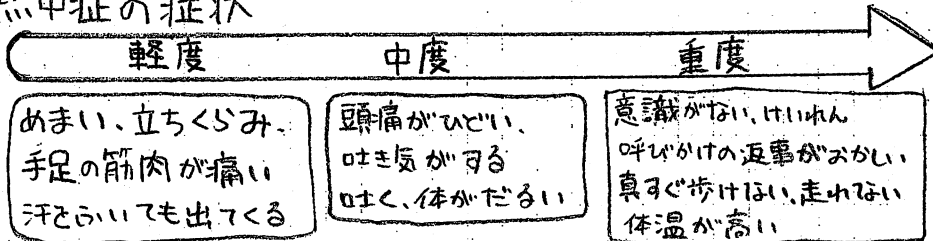 熱中症の症状
軽度 中度 重度
めまい、立ちくらみ、
手足の筋肉が痛い
汗をふいても出てくる
頭痛がひどい、
吐き気がする
吐く、体がだるい
意識がない、けいれん
呼びかけの返事がおかしい
真すぐ歩けない、走れない
体温が高い